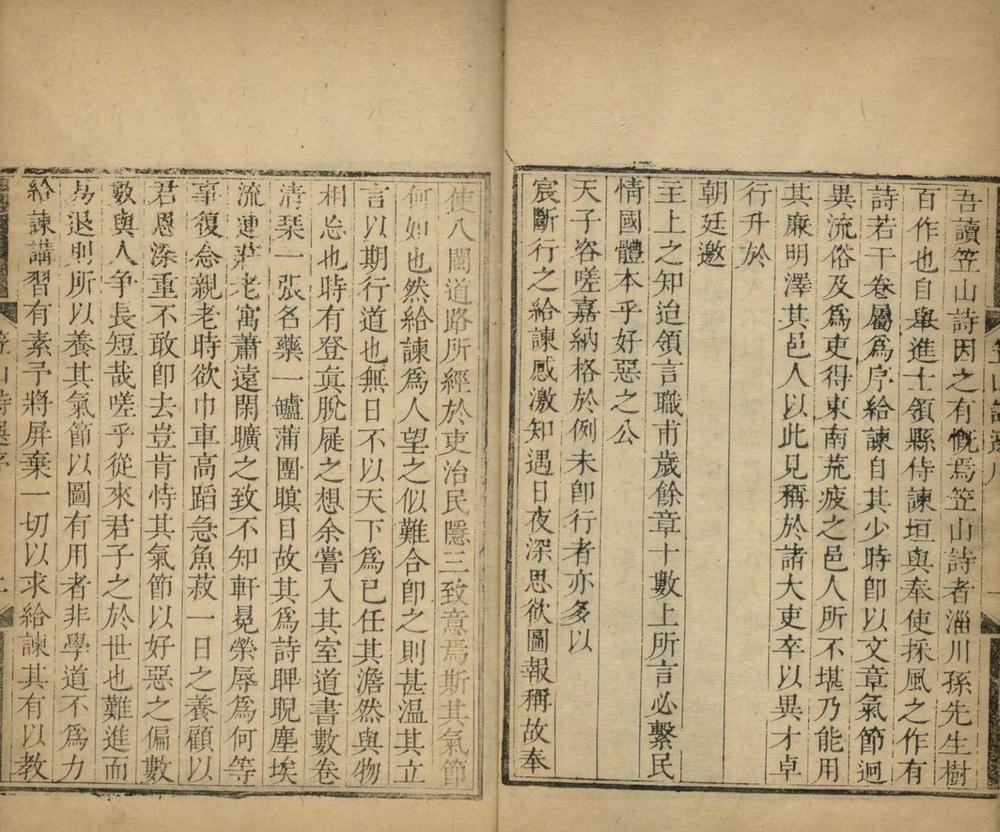 吾讀笠山詩因之有慨焉笠山詩者淄川孫先生樹
百作也自舉進士領縣侍諫垣與奉使採風之作有
詩若干卷屬爲序給諫自其少時卽以文章氣節迥
異流俗及爲吏得東南荒疲之邑人所不堪乃能用
其廉明澤其邑人以此見稱於諸大吏卒以異才卓
行升於
朝廷邀
主上之知迨領言職甫歲餘章十數上所言必繫民
情國體本乎好惡之公
天子咨嗟嘉納格於例未卽行者亦多以
宸斷行之給諫感激知遇日夜深思欲圖報稱故奉
使八閩道路所經於吏治民隱三致意焉斯其氣節
何如也然給諫爲人望之似難合卽之則甚温其立
言以期行道也無日不以天下爲已任其澹然與物
相忘也時有登眞脫屣之想余嘗入其室道書數卷
清琹一張名藥一鑪蒲團瞑目故其爲詩睥睨塵埃
流連莊老寓蕭遠閑曠之致不知軒冕榮辱爲何等
事復念親老時欲巾車高蹈急魚菽一日之養顧以
君恩深重不敢卽去豈肯恃其氣節以好惡之偏數
數與人爭長短哉嗟乎從來君子之於世也難進而
易退則所以養其氣節以圖有用者非學道不爲力
給諫講習有素予將屏棄一切以求給諫其有以教